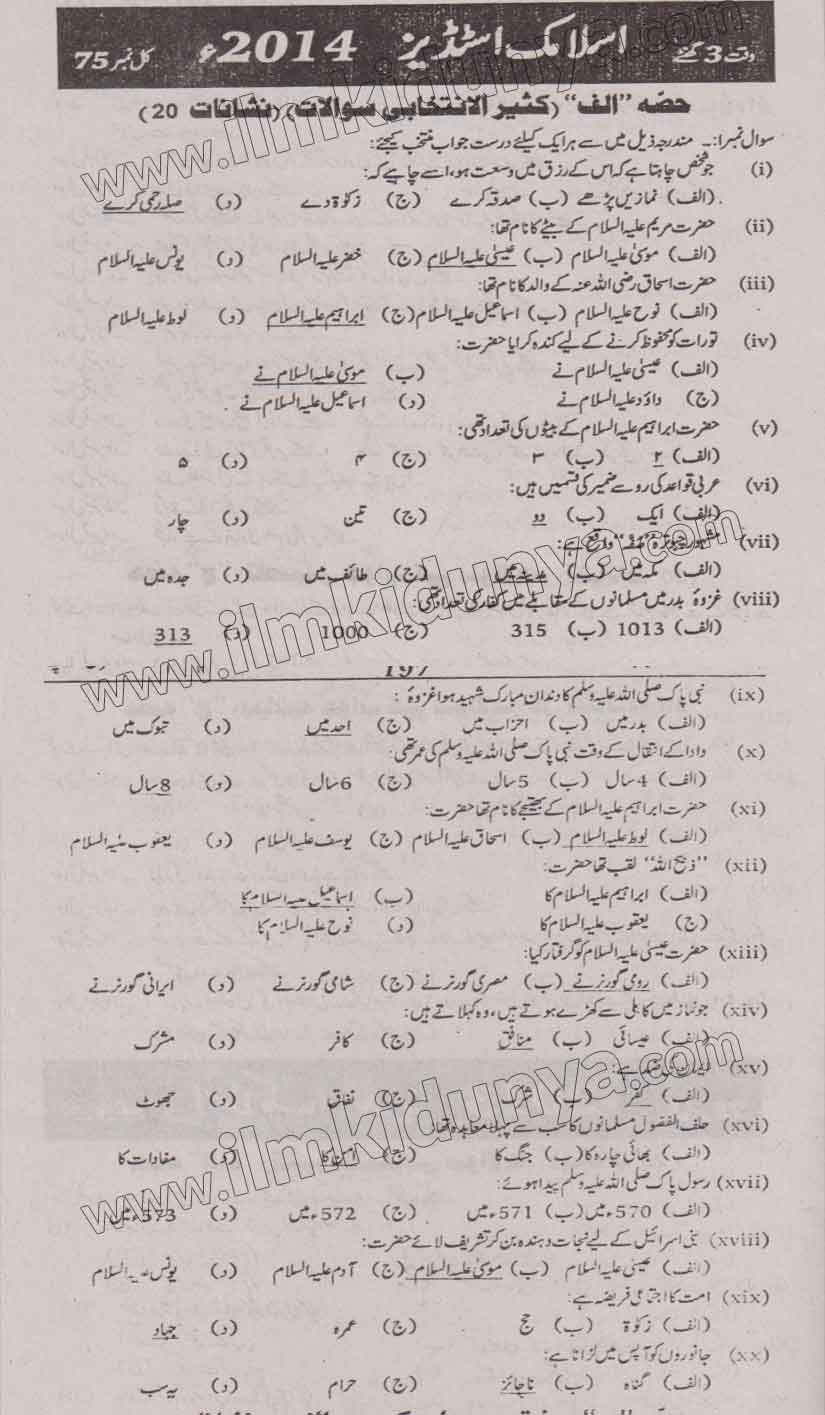 وقت 3 گھنٹے اسلامک اسٹڈیز 2014ء کل نمبر 75
حصہ "الف" (کثیر الانتخابی سوالات) (نشانات 20)
سوال نمبر 1:۔ مندرجہ ذیل میں سے ہر ایک کیلئے درست جواب منتخب کیجئے:
(i) جو شخص چاہتا ہے کہ اس کے رزق میں وسعت ہو، اسے چاہیے کہ:
(الف) نمازیں پڑھے (ب) صدقہ کرے (ج) زکوٰۃ دے (د) صلہ رحمی کرے
(ii) حضرت مریم علیہ السلام کے بیٹے کا نام تھا:
(الف) موسیٰ علیہ السلام (ب) عیسیٰ علیہ السلام (ج) خضر علیہ السلام (د) یونس علیہ السلام
(iii) حضرت اسحاق رضی اللہ عنہ کے والد کا نام تھا:
(الف) نوح علیہ السلام (ب) اسماعیل علیہ السلام (ج) ابراہیم علیہ السلام (د) لوط علیہ السلام
(iv) تورات کو محفوظ کرنے کے لیے کندہ کرایا حضرت:
(الف) عیسیٰ علیہ السلام نے (ب) موسیٰ علیہ السلام نے
(ج) داؤد علیہ السلام نے (د) اسماعیل علیہ السلام نے
(v) حضرت ابراہیم علیہ السلام کے بیٹوں کی تعداد تھی:
(الف) ۲ (ب) ۳ (ج) ۴ (د) ۵
(vi) عربی قواعد کی رو سے ضمیر کی قسمیں ہیں:
(الف) ایک (ب) دو (ج) تین (د) چار
(vii) مشہور چبوترہ "صفہ" واقع ہے:
(الف) مکہ میں (ب) مدینہ میں (ج) طائف میں (د) جدہ میں
(viii) غزوۂ بدر میں مسلمانوں کے مقابلے میں کفار کی تعداد تھی:
(الف) 1013 (ب) 315 (ج) 1000 (د) 313
197
(ix) نبی پاک صلی اللہ علیہ وسلم کا دندان مبارک شہید ہوا غزوۂ:
(الف) بدر میں (ب) احزاب میں (ج) احد میں (د) تبوک میں
(x) دادا کے انتقال کے وقت نبی پاک صلی اللہ علیہ وسلم کی عمر تھی:
(الف) 4 سال (ب) 5 سال (ج) 6 سال (د) 8 سال
(xi) حضرت ابراہیم علیہ السلام کے بھتیجے کا نام تھا حضرت:
(الف) لوط علیہ السلام (ب) اسحاق علیہ السلام (ج) یوسف علیہ السلام (د) یعقوب علیہ السلام
(xii) "ذبیح اللہ" لقب تھا حضرت:
(الف) ابراہیم علیہ السلام کا (ب) اسماعیل علیہ السلام کا
(ج) یعقوب علیہ السلام کا (د) نوح علیہ السلام کا
(xiii) حضرت عیسیٰ علیہ السلام کو گرفتار کیا:
(الف) رومی گورنر نے (ب) مصری گورنر نے (ج) شامی گورنر نے (د) ایرانی گورنر نے
(xiv) جو نماز میں کاہلی سے کھڑے ہوتے ہیں، وہ کہلاتے ہیں:
(الف) عیسائی (ب) منافق (ج) کافر (د) مشرک
(xv) کی ضد ہے:
(الف) کفر (ب) شرک (ج) نفاق (د) جھوٹ
(xvi) حلف الفضول مسلمانوں کا سب سے پہلا معاہدہ تھا:
(الف) بھائی چارہ کا (ب) جنگ کا (ج) امن کا (د) مفادات کا
(xvii) رسول پاک صلی اللہ علیہ وسلم پیدا ہوئے:
(الف) 570ء میں (ب) 571ء میں (ج) 572ء میں (د) 573ء میں
(xviii) بنی اسرائیل کے لیے نجات دہندہ بن کر تشریف لائے حضرت:
(الف) عیسیٰ علیہ السلام (ب) موسیٰ علیہ السلام (ج) آدم علیہ السلام (د) یونس علیہ السلام
(xix) امت کا اجتماعی فریضہ ہے:
(الف) زکوٰۃ (ب) حج (ج) عمرہ (د) جہاد
(xx) جانوروں کو آپس میں لڑانا ہے:
(الف) گناہ (ب) ناجائز (ج) حرام (د) یہ سب
www.ilmkidunya.com
www.ilmkidunya.com
www.ilmkidunya.com